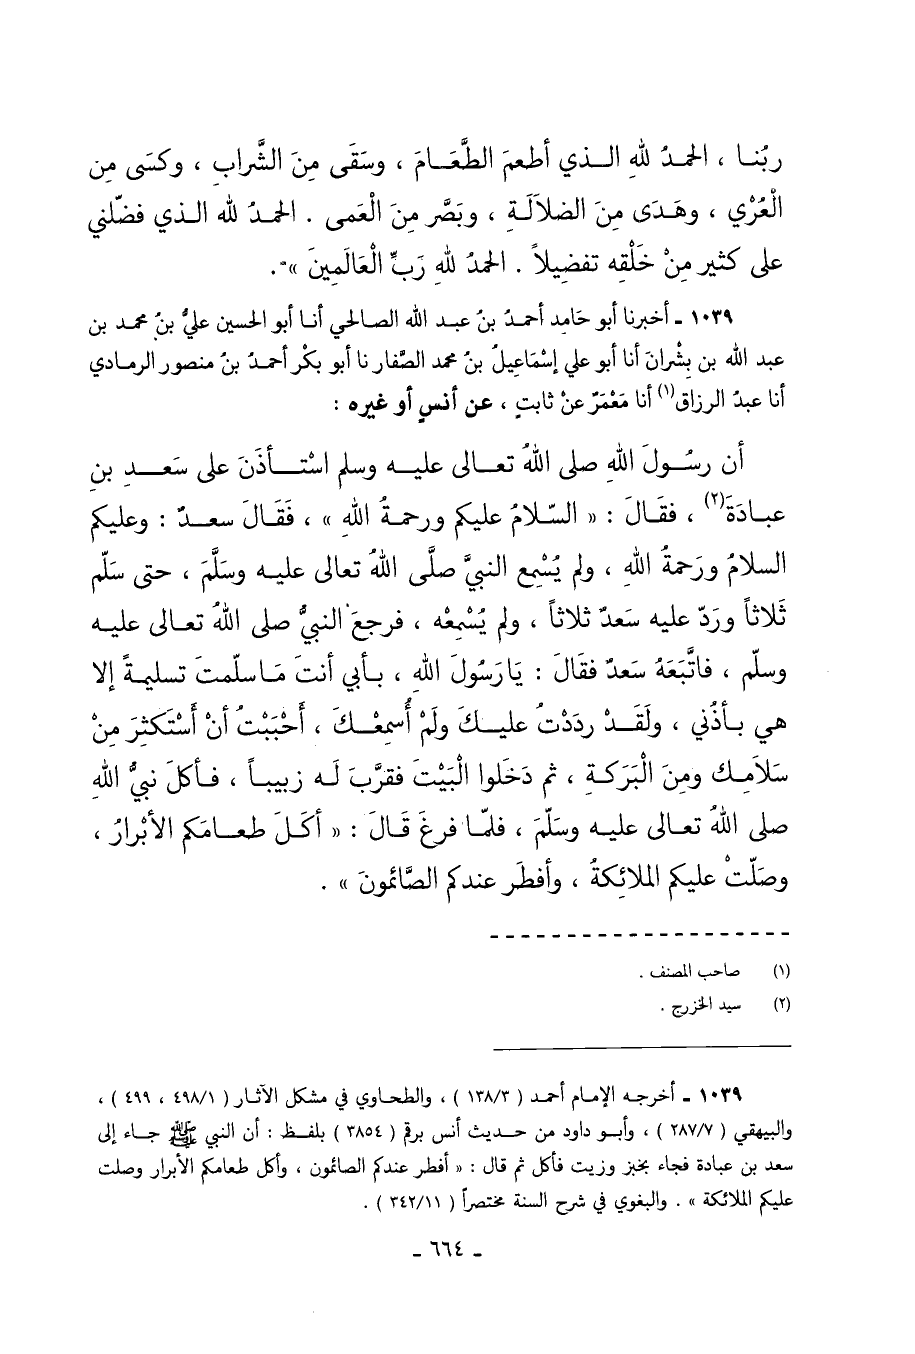 ربُنا ، الحمدُ للهِ الذي أطعمَ الطَّعَامَ ، وسَقَى مِنَ الشَّرابِ ، وكسَى مِن
الْعُرْيِ ، وهَدَى مِنَ الضلاَلَةِ ، وبَصَّر مِنَ الْعَمى . الحمدُ لله الذي فضّلني
على كثير مِنْ خَلْقِه تفضيلاً . الحمدُ للهِ رَبِّ الْعَالَمِينَ »* .
١٠٣٩ ـ أخبرنا أبو حَامِد أحمدُ بنُ عبد الله الصالحي أنا أبو الحسين عليُّ بنُ محمد بن
عبد الله بن بِشْرانَ أنا أبو علي إسْمَاعيلُ بنُ محمد الصَّفار نا أبو بكْر أحمدُ بنُ منصور الرمادي
أنا عبدُ الرزاق(١) أنا مَعْمَرٌ عنْ ثابتٍ ، عن أنسٍ أو غيره :
أن رسُولَ اللهِ صلى اللهُ تعالى عليه وسلم اسْتأذَنَ على سَعدِ بنِ
عبادَةَ(٢) ، فقَالَ : « السّلامُ عليكم ورحمةُ اللهِ » ، فَقَالَ سعدٌ : وعليكم
السلامُ ورَحمةُ اللهِ ، ولم يُسْمِع النبيَّ صلَّى اللهُ تعالى عليه وسَلَّمَ ، حتى سَلّم
ثَلاثاً وردّ عليه سَعدٌ ثلاثاً ، ولم يُسْمِعْه ، فرجعَ النبيُّ صلى اللهُ تعالى عليه
وسلّم ، فاتَّبَعَهُ سَعدٌ فقَالَ : يَارَسُولَ اللهِ ، بأبي أنتَ مَاسلّمتَ تسليمةً إلا
هي بأذُني ، ولَقَدْ ردَدْتُ عليكَ ولَمْ أُسمِعْكَ ، أَحْبَبْتُ أنْ أَسْتَكثِرَ مِنْ
سَلاَمِك ومِنَ الْبَرَكةِ ، ثم دَخَلوا الْبَيْتَ فقرَّبَ لَه زبيباً ، فأكلَ نبيُّ اللهِ
صلى اللهُ تعالى عليه وسَلَّمَ ، فلمّا فرغَ قَالَ : « أكَلَ طعامَكم الأبْرارُ ،
وصَلّتْ عليكم الملائِكةُ ، وأفطَر عندكم الصَّائمُونَ » .
(١) صاحب المصنف .
(٢) سيد الخزرج .
١٠٣٩ ـ أخرجه الإمام أحمد ( ١٣٨/٣ ) ، والطحاوي في مشكل الآثار ( ٤٩٨/١ ، ٤٩٩ ) ،
والبيهقي ( ٢٨٧/٧ ) ، وأبو داود من حديث أنس برقم ( ٣٨٥٤ ) بلفظ : أن النبي ﷺ جاء إلى
سعد بن عبادة فجاء بخبز وزيت فأكل ثم قال : « أفطر عندكم الصائمون ، وأكل طعامكم الأبرار وصلت
عليكم الملائكة » . والبغوي في شرح السنة مختصراً ( ٣٤٢/١١ ) .
ـ ٦٦٤ ـ